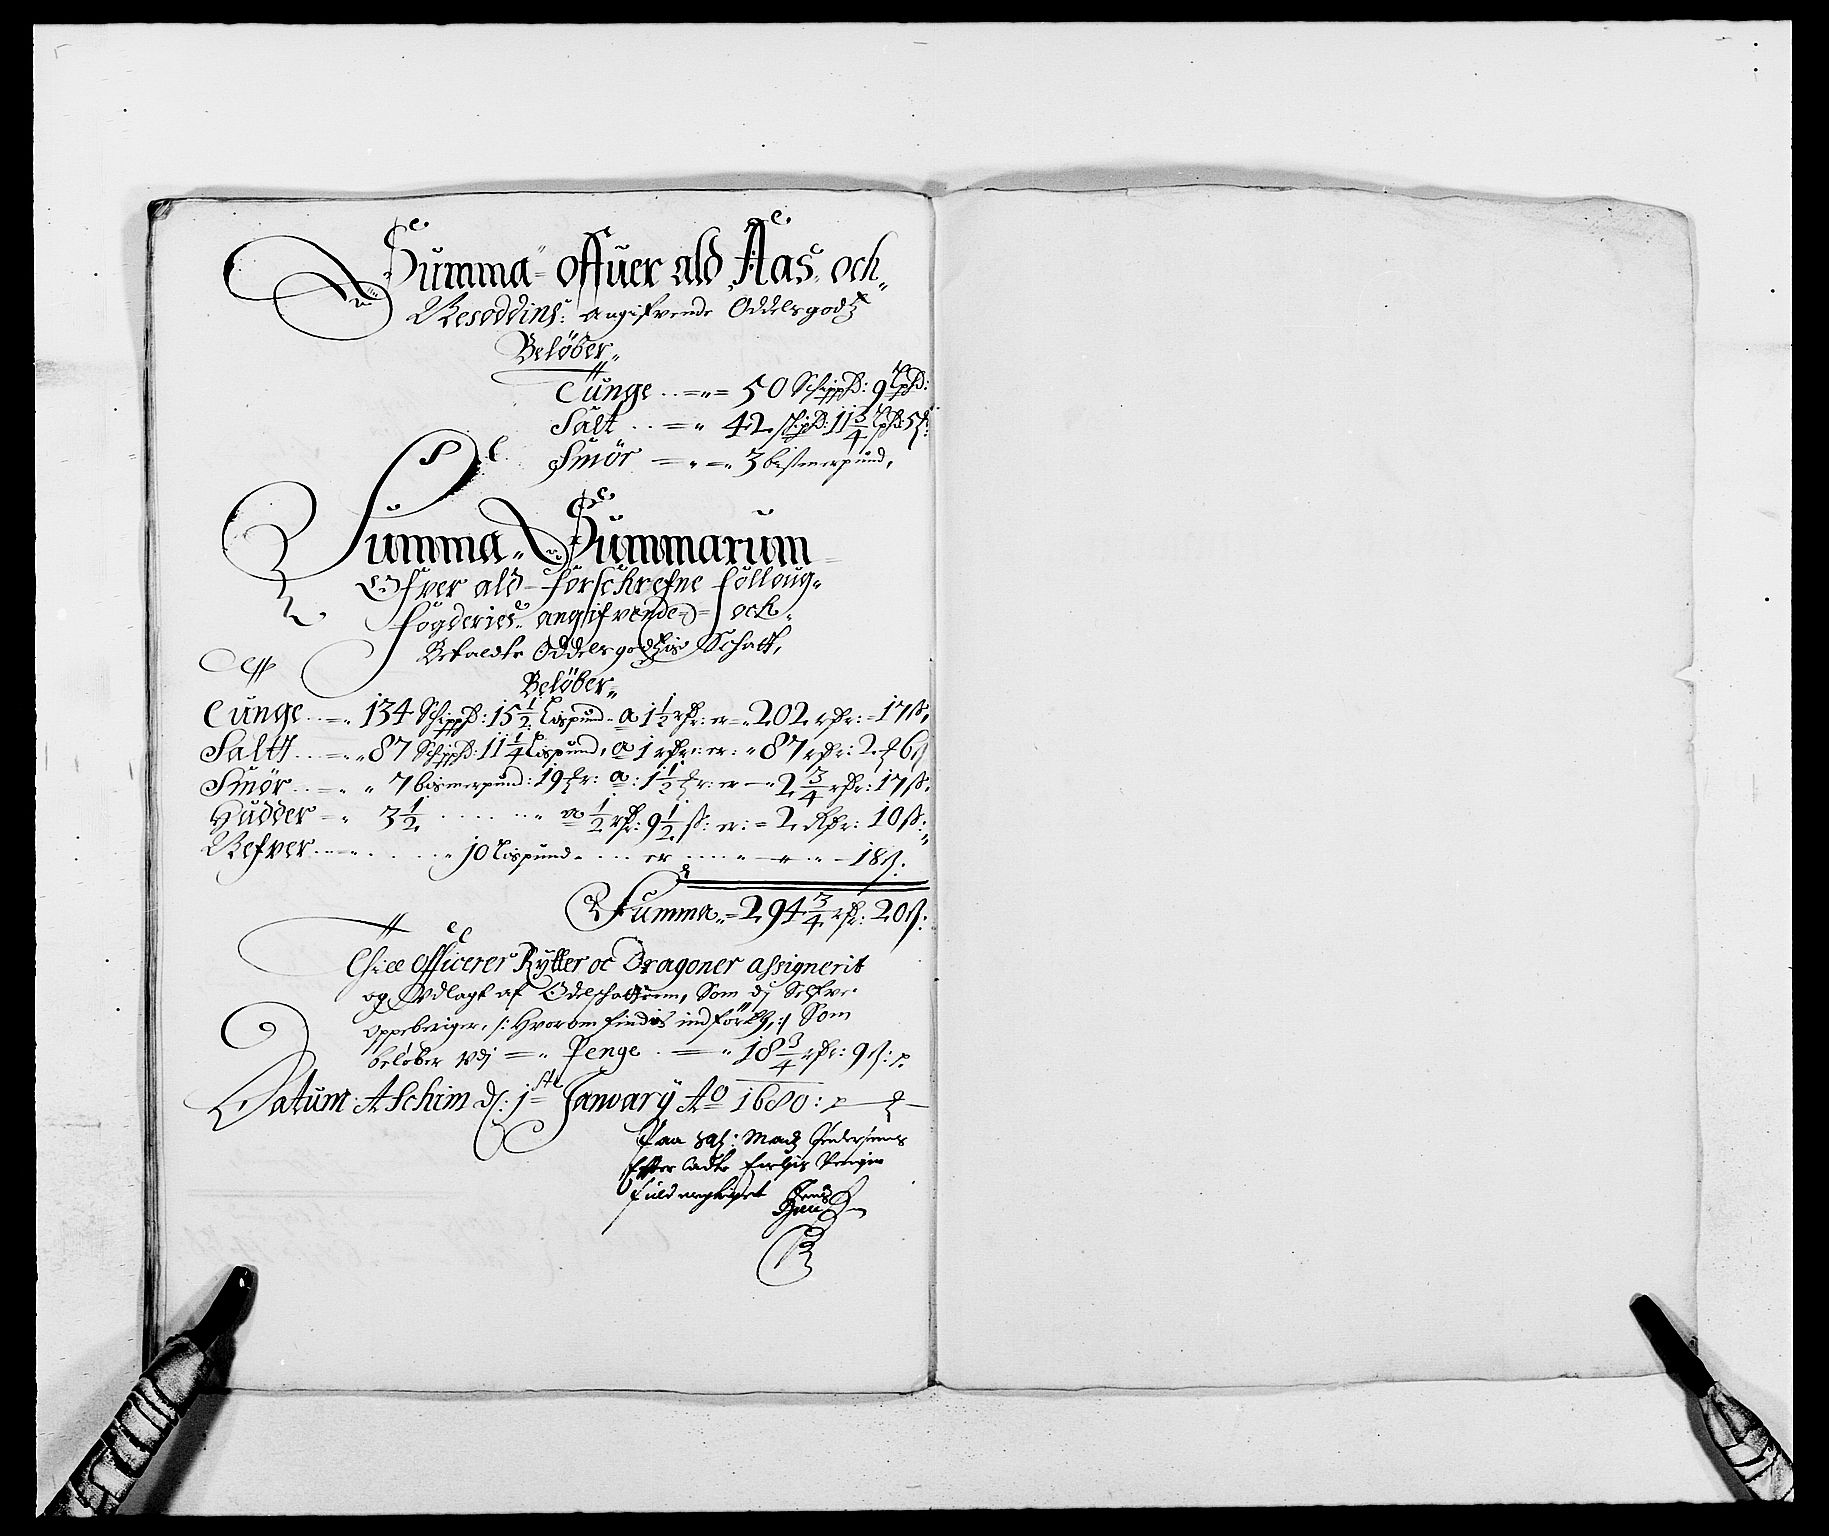 Summa offuer ald Aas och
Nesoddins: angifvende Oddelsgodz
Beløber
Tunge 50 Schippd: 9 Lpd:
Salt 42 skpd: 11 3/4 Lpd: 5
Smör 3 bismerpund,
Summa Summarum
Ofver ald forschrefne Folloug
fogderies angifvende och
Betaldte Oddelsgodzis Schatt,
Beløber
Tunge 134 Schippd: 15 1/2 Lispund a 1 1/2 rdr: er 202 rdr: 17 ß,
Saltt 87 Schippd: 11 1/4 Lispund, a 1 rdr: er: 87 rdr: 2 6 ß
Smör 7 bismerpund: 19 a: 1 1/2 er 2 3/4 rdr: 17 ß.
Hudder 3 1/2 a 1/2 rdr: 9 1/2 ß: er: 2 Rdr: 10 ß:
Nefver 10 Lispund er 18 ß.
Summa 294 3/4 rdr: 20 ß:
officerer Rytter oc Dragoner assignerit
og Udlagt af Odelschatten, Som dj Selfve
oppeberiger, /: Hvorom findis indfört, :/ Som
beløber udj Penge 18 3/4 rdr: 9 ß:
Datum Aschim d: 1ste January Ao 1680:
Paa Sal: Madz Pedersens
Effter
fuldmegtiget Jens